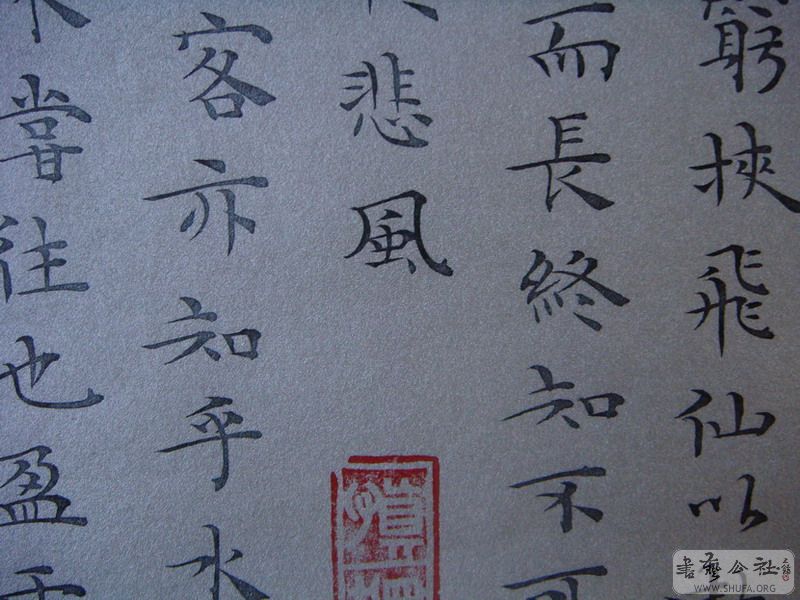 窮挾飛仙以
而長終知不可
悲風
客亦知乎水
未嘗往也盈
書藝公社
WWW.SHUFA.ORG